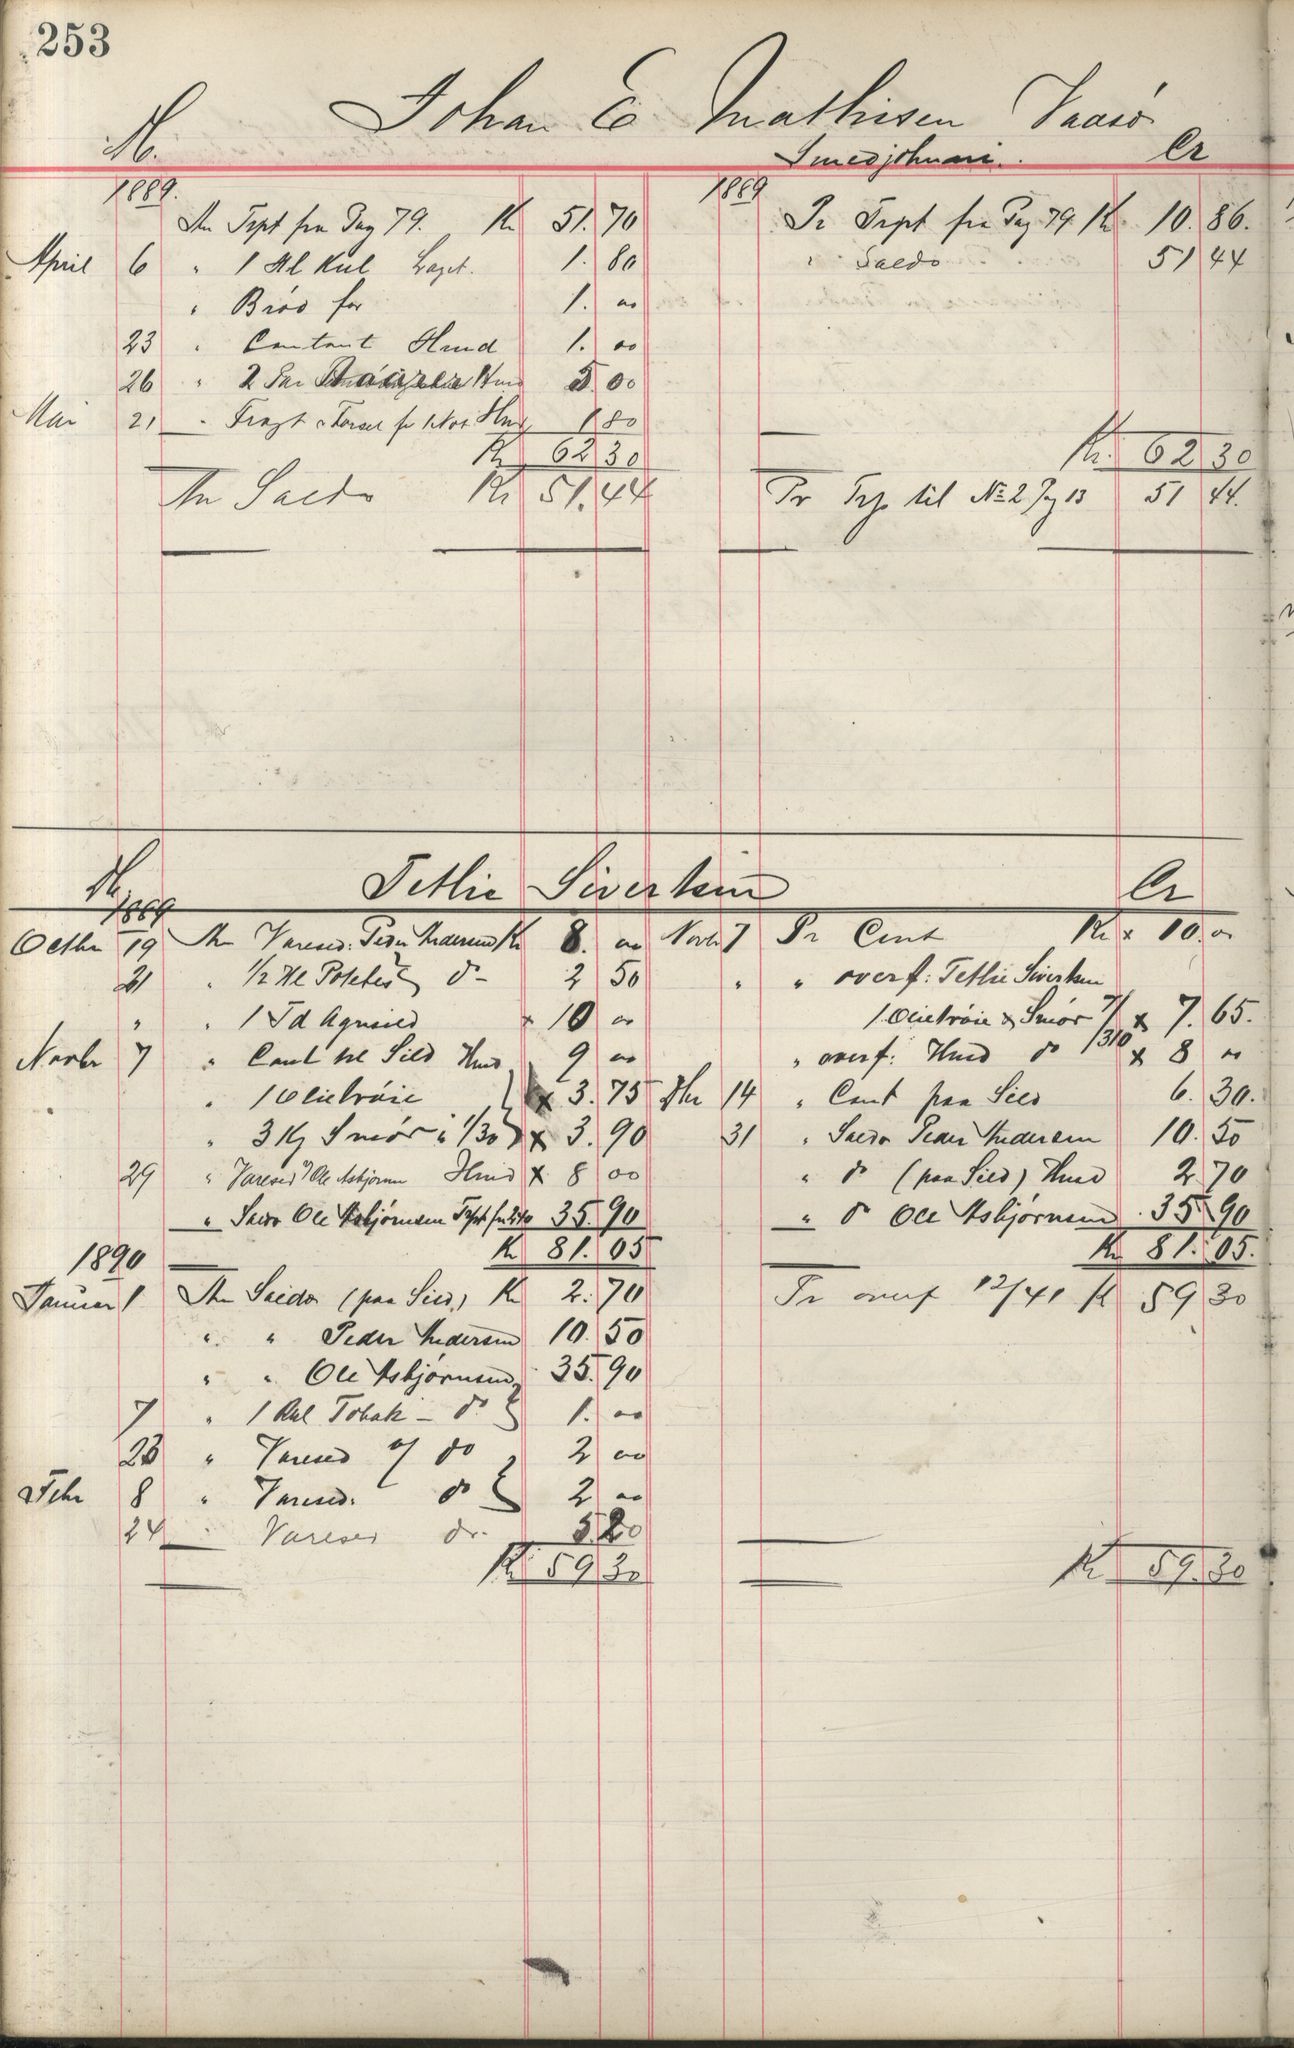 253
Johan E Mathisen Vaasö
Dr. Smedjohani. Cr
1889.
An Trpt fra Pag 79. Kr 51.70
April 6 " 1 Hl Kul Laget. 1.80
" Bröd for 1.00
23 " Contant Hmd 1.00
26 " 2 Par Hmd 5.00
Mai 21 " Fragt o Torsel fr 1 Not Hmd 1 80
Kr 62 30
An Saldo Kr 51.44
1889
Pr Trpt fra Pag 79 Kr 10.86.
" Saldo 51 44
Kr. 62 30
Pr Trp til No 2 Pag 13 51 44.
Dr. Tetlie Sivertsen Cr
1889
Octbr 19 An Varesed. Peder Andersen Kr 8.00
21 " 1/2 Hl Poteter do 2 50
" " 1 Td Agnsild x 10 00
Novbr 7 " Cont til Sild Hmd 9 00
" 1 Olietröie x 3.75
" 3 Kg Smör à 1/30 x 3.90
29 " Varesed Ole Asbjörnsen Hmd x 8 00
" Saldo Ole Asbjörnsen Trpt fra 35.90
Kr 81.05
Novbr 7 Pr Cont Kr x 10.00
" " overf: Tetlie Sivertsen
1 Olietröie & Smör 7/ x 7.65.
" overf: Hmd do /310 x 8 00
Dbr 14 " Cont paa Sild 6.30.
31 " Saldo Peder Andersen 10.50
" do (paa Sild) Hmd 2 70
" do Ole Asbjörnsen 35 90
Kr 81.05.
1890
Januar 1 An Saldo (paa Sild) Kr 2.70
" " Peder Andersen 10.50
" " Ole Asbjörnsen 35.90
7 " 1 Rul Tobak - do 1.00
23 " Varesed do 2 00
Febr 8 " Varesed. do 2 00
24 " Varesed do 5.20
Kr 59 30
Pr overf 12/41 Kr 59 30
Kr 59.30